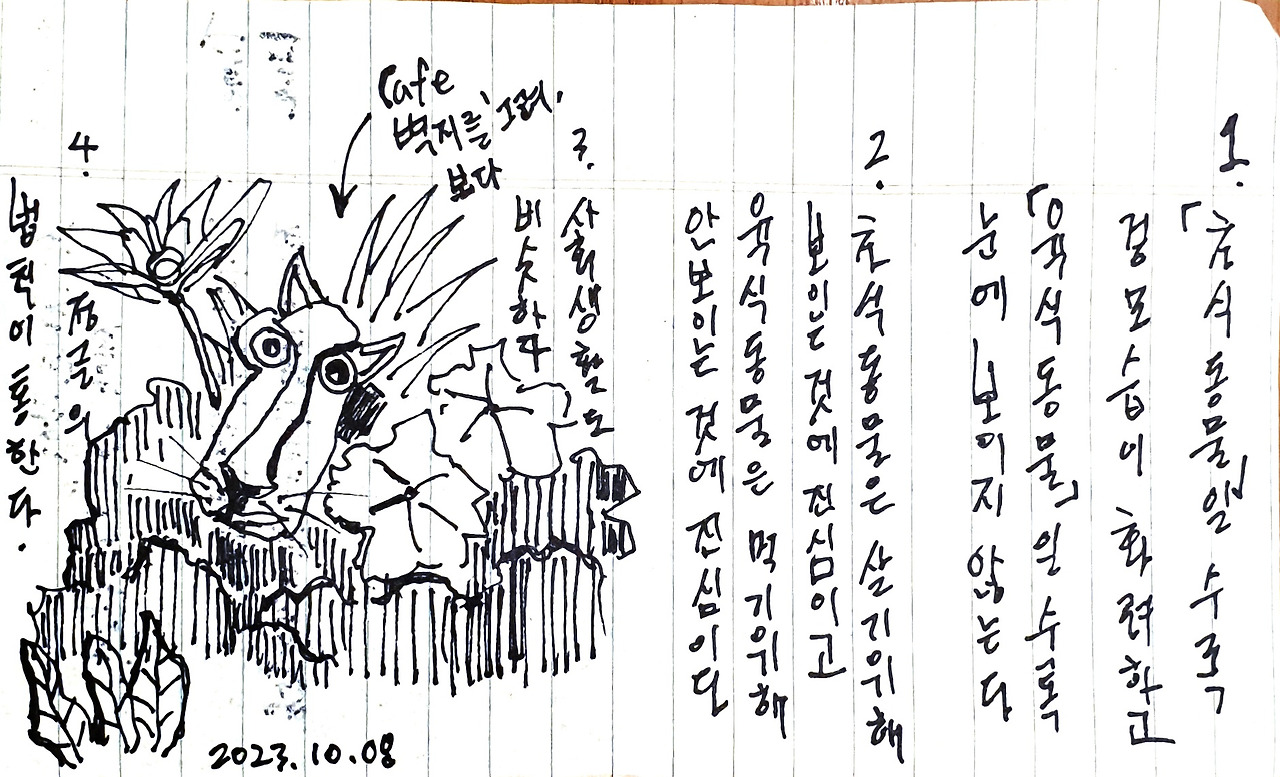 1.
「초식동물」일 수록
겉모습이 화려하고
「육식동물」일 수록
눈에 보이지 않는다
2.
초식동물은 살기위해
보이는 것에 진심이고
육식동물은 먹기위해
안보이는 것에 진심이다
3.
사회생활도
비슷하다
Cafe
벽지를 그려,
보다
4.
정글의
법칙이 통한다.
2023.10.08